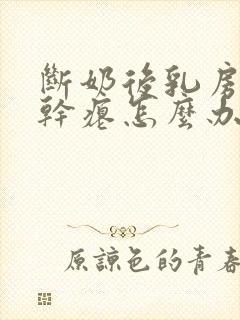 斷奶後乳房
幹癟怎麼办
原諒色的青春